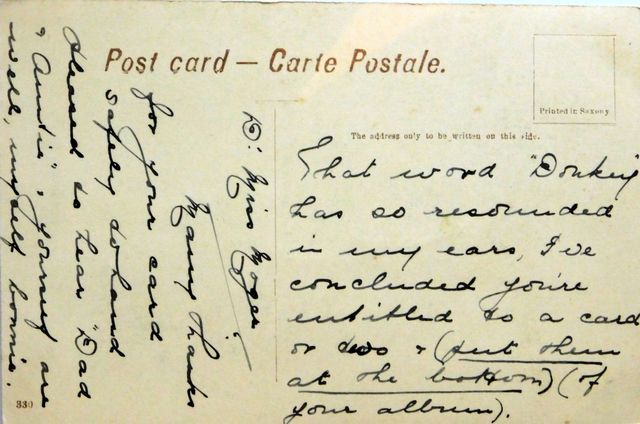 Post card — Carte Postale.
Printed in Saxony
The address only to be written on this side.
D: Miss Moger,
Many thanks
for your card
safely to hand
Pleased to hear "Dad
& Auntie", yourself are
well, myself bonnie.
That word "Donkey"
has so resounded
in my ears, I've
concluded you're
entitled to a card
or two & (put them
at the bottom) (of
your album).
330